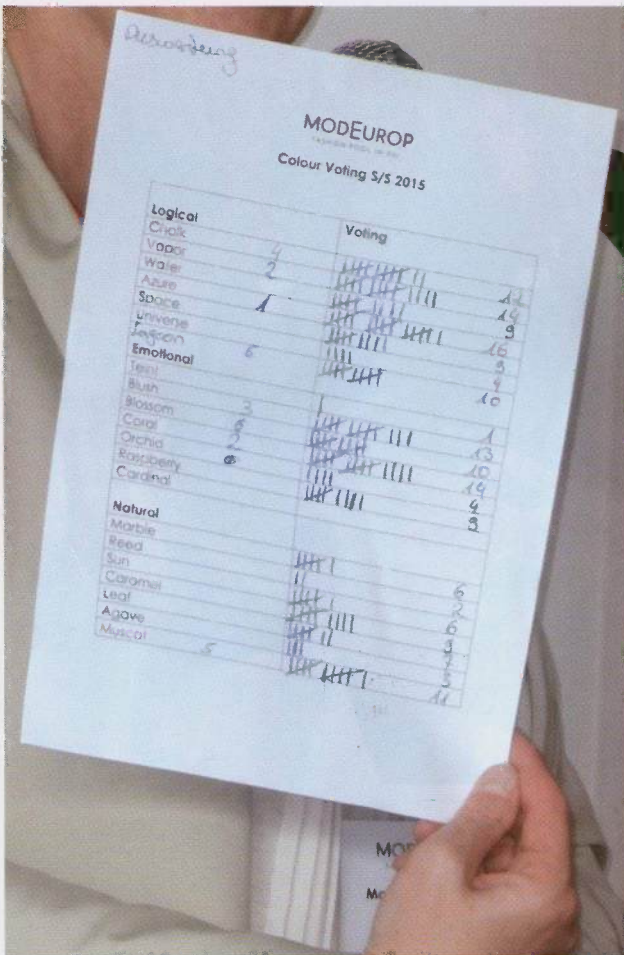 Auswertung
MODEUROP
Colour Voting S/S 2015
Logical Voting
Chalk 4 12
Vapor 2 14
Water 9
Azure 1 16
Space 9
Universe 4
Lagoon 6 10
Emotional
Teint 1
Blush 3 13
Blossom 6 10
Coral 2 14
Orchid 4
Raspberry 9
Cardinal
Natural
Marble 6
Reed 2
Sun 6
Caramel 9
Leaf 7
Agave 5
Muscat 5 11